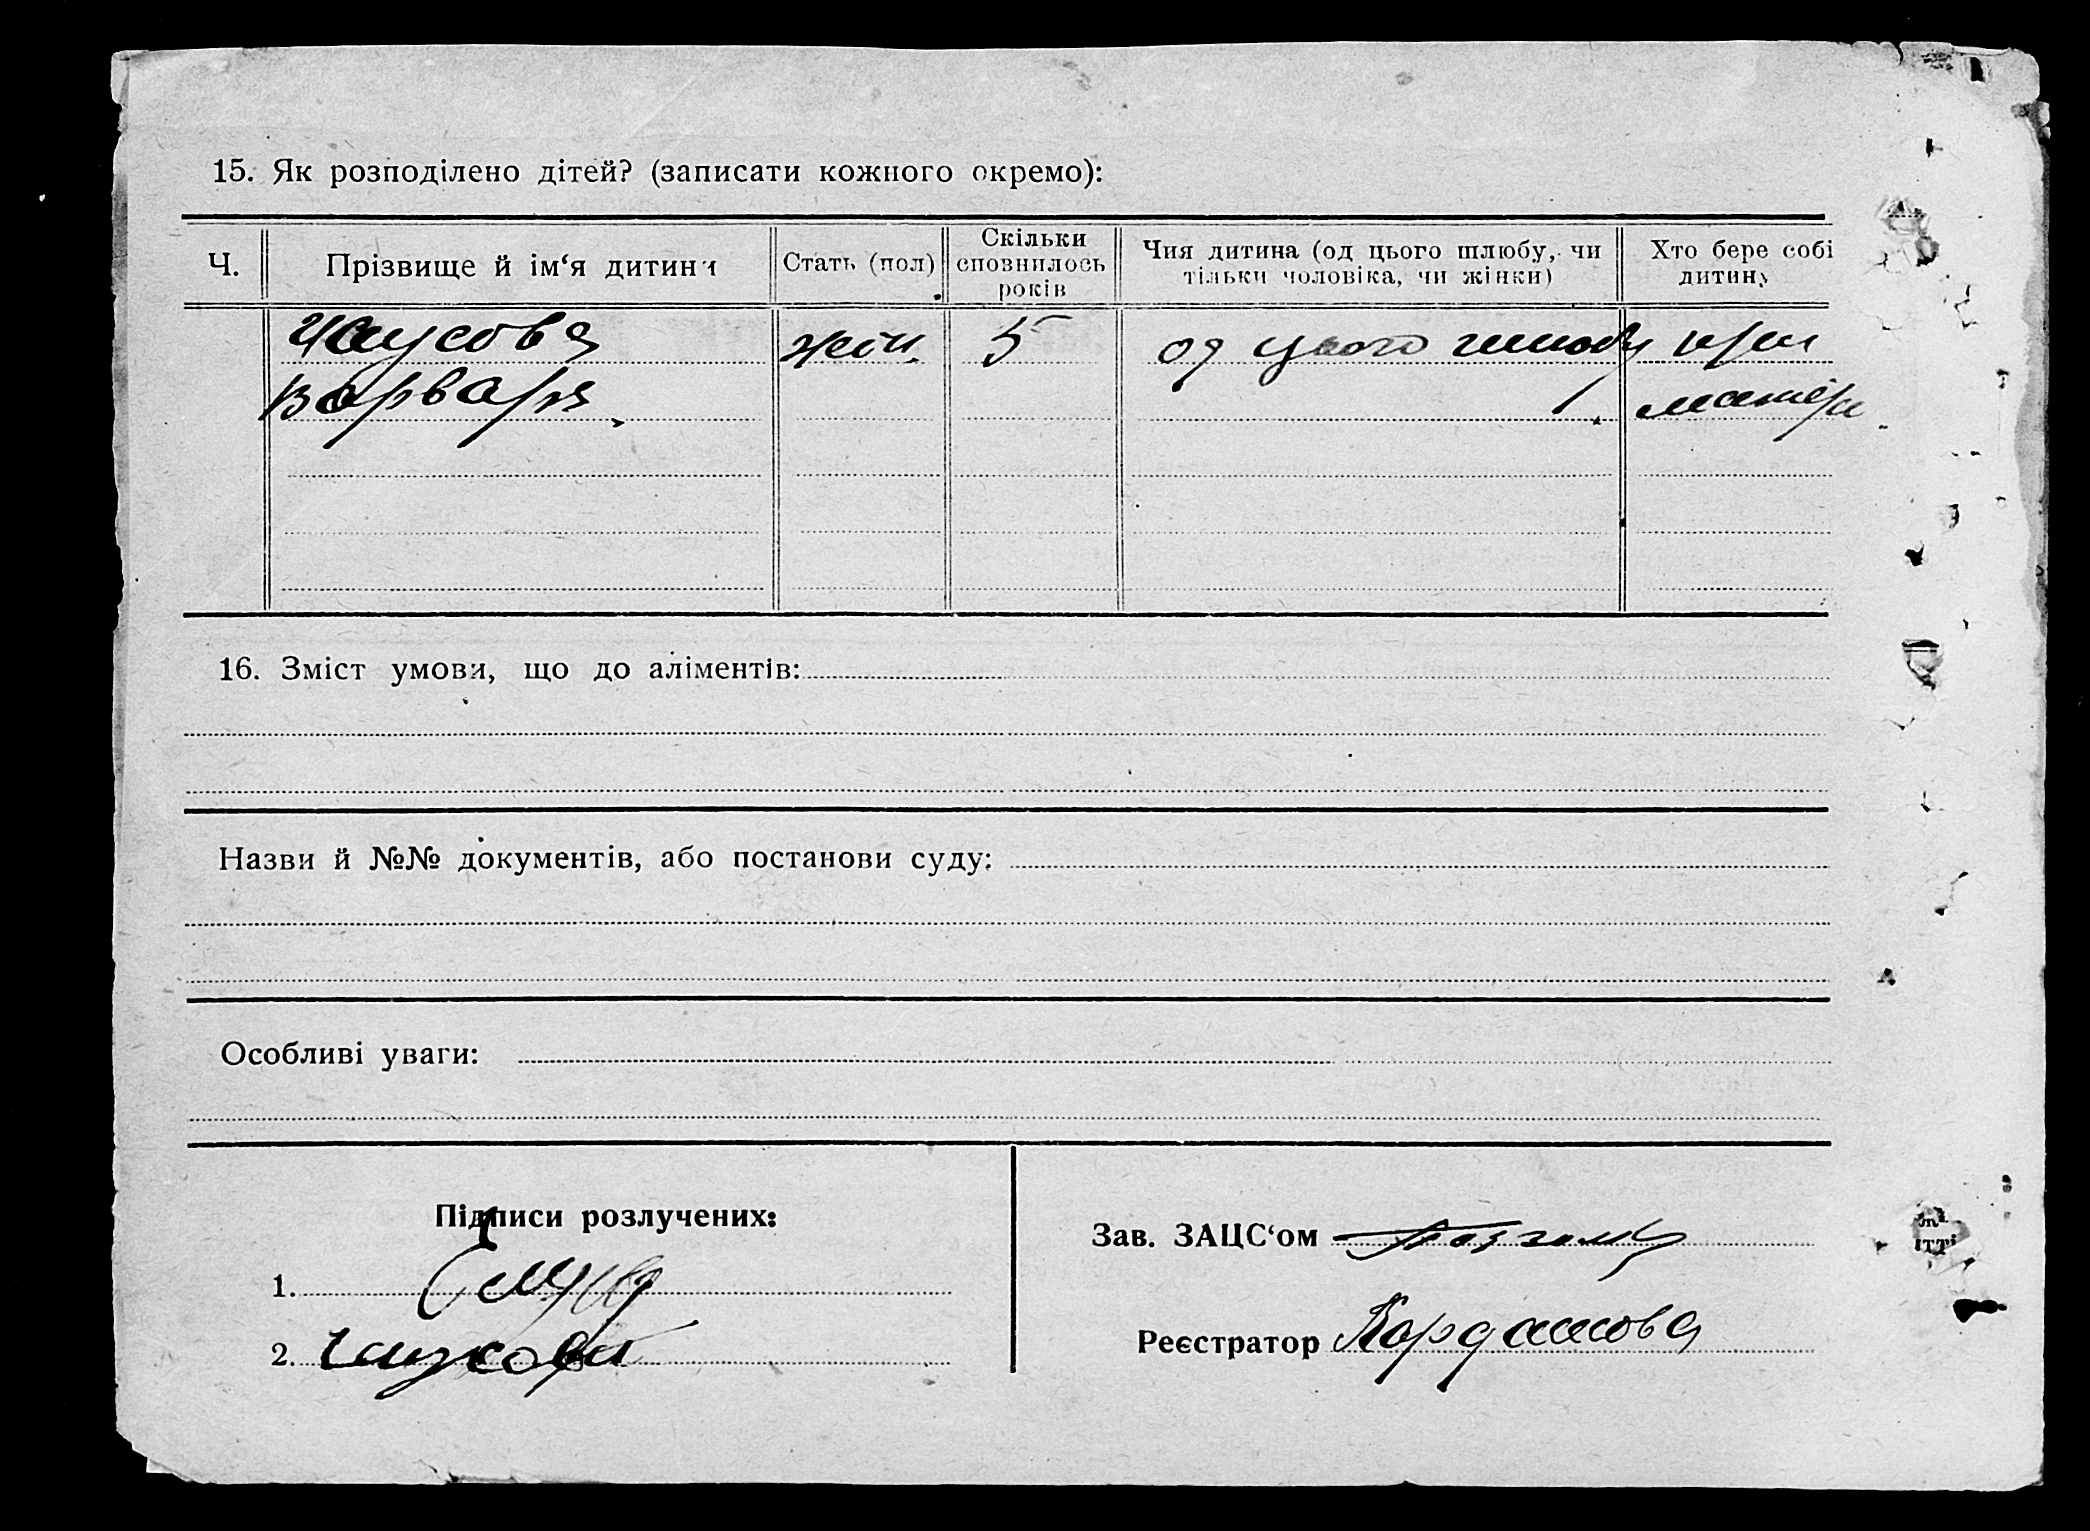 15. Як розподілено дітей? (записати кожного окремо):
Ч. Прізвище й ім‘я дитини Стать (пол) Скільки сповнилось років Чия дитина (од цього шлюбу, чи тільки чоловіка, чи жінки) Хто бере собі дитину
Чаусова жін. 5 од цього шлюбу при
Варвара. матері.
16. Зміст умови, що до аліментів:
Назви й №№ документів, або постанови суду:
Особливі уваги:
Підписи розлучених:
Зав. ЗАЦС‘ом
1.
2.
Реєстратор